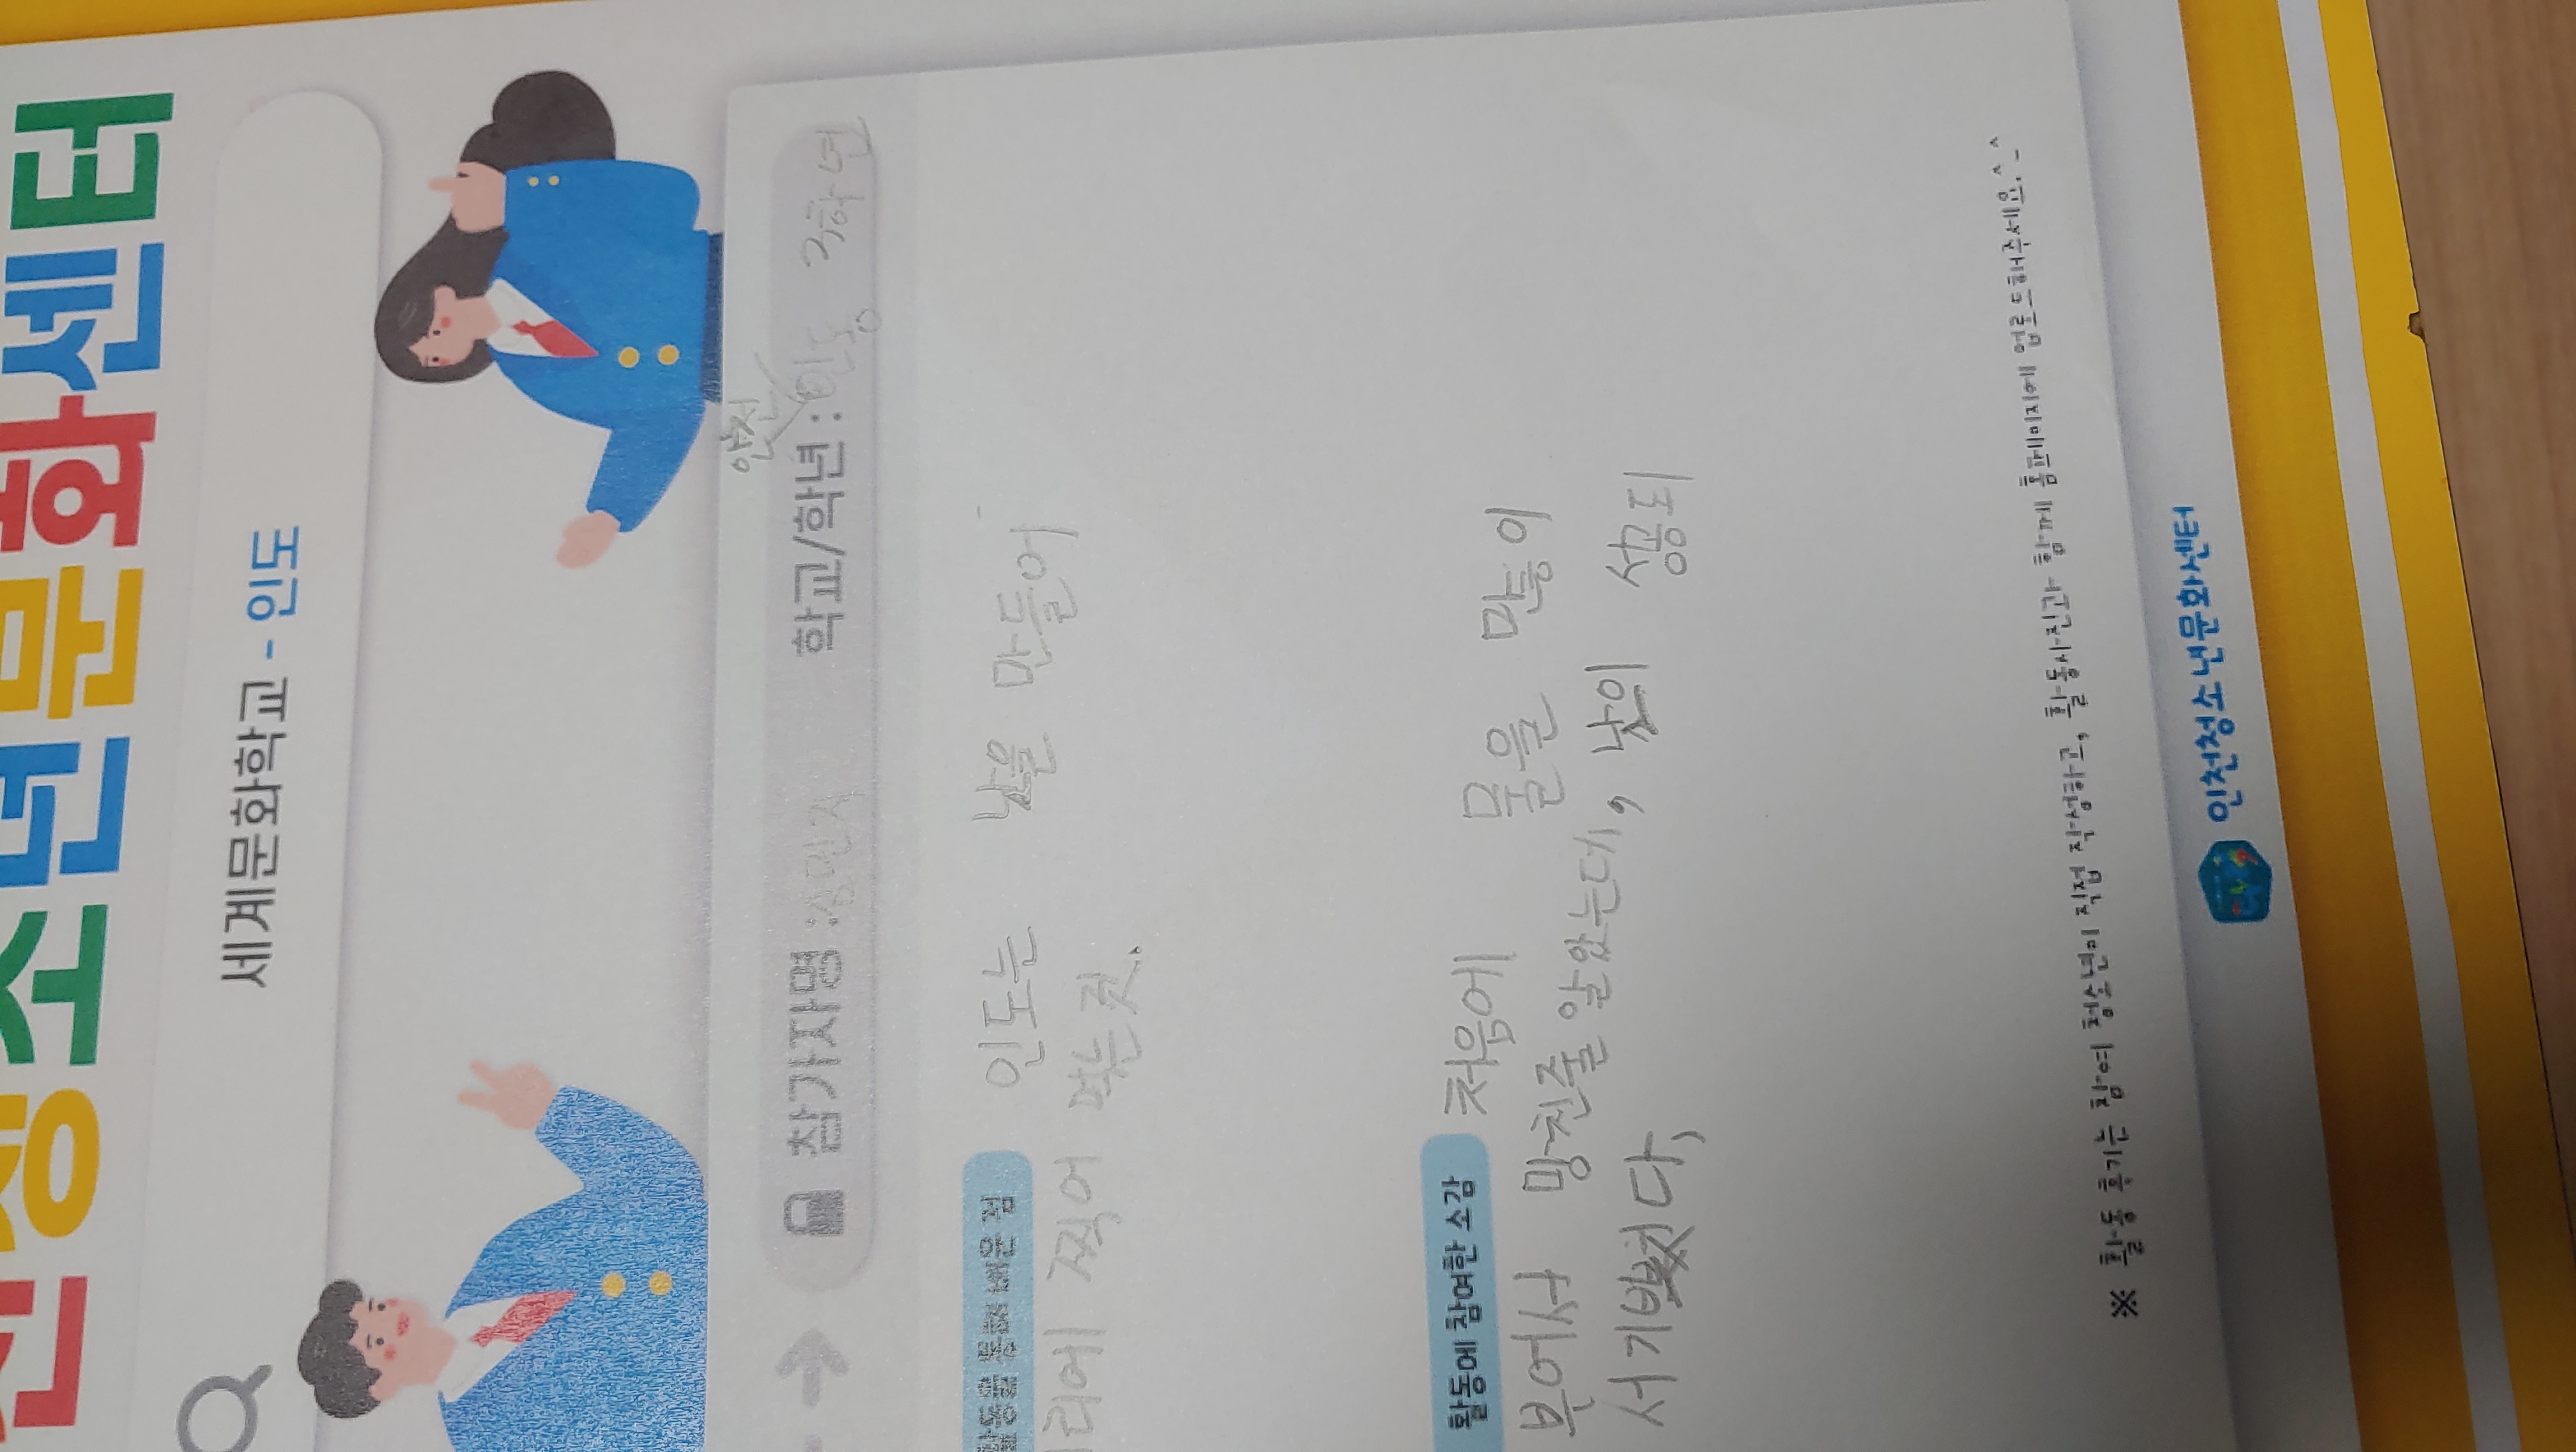 청소년문화센터
세계문화학교 - 인도
참가자명 : 학교/학년 : 안전 인동 3학년
활동을 통해 배운 점
인도는 난을 만들어
찍어 먹는 것.
활동에 참여한 소감
처음에 물을 많이
부어서 망친줄 알았는데, 난이 성공되
서 기뻤다,
※ 활동 후기는 참여 청소년이 직접 작성하고, 활동사진과 함께 홈페이지에 업로드해주세요.^_^
인천청소년문화센터